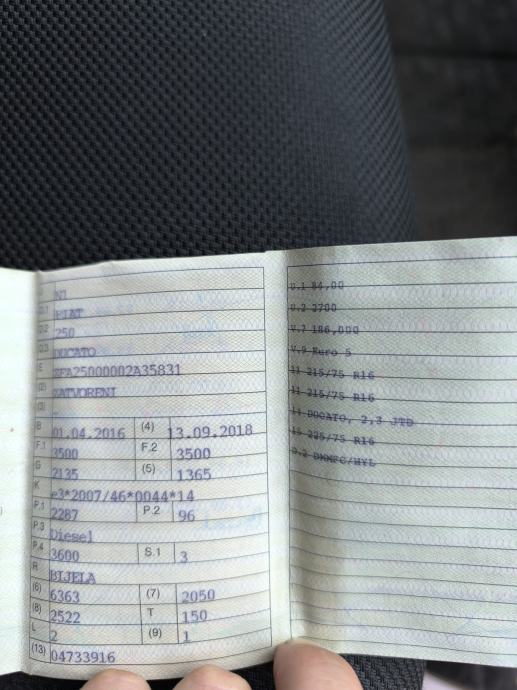 J N1
D.1 FIAT
D.2 250
D.3 DUCATO
E ZFA25000002A35831
(2) ZATVORENI
(3) -
B 01.04.2016 (4) 13.09.2018
F.1 3500 F.2 3500
G 2135 (5) 1365
K e3*2007/46*0044*14
P.1 2287 P.2 96
P.3 Diesel
P.4 3600 S.1 3
R BIJELA
(6) 6363 (7) 2050
(8) 2522 T 150
L 2 (9) 1
(13) 04733916
U.1 84,00
U.2 2700
V.7 186,000
V.9 Euro 5
11 215/75 R16
11 215/75 R16
14 DUCATO, 2,3 JTD
15 225/75 R16
D.2 DMMFC/HYL